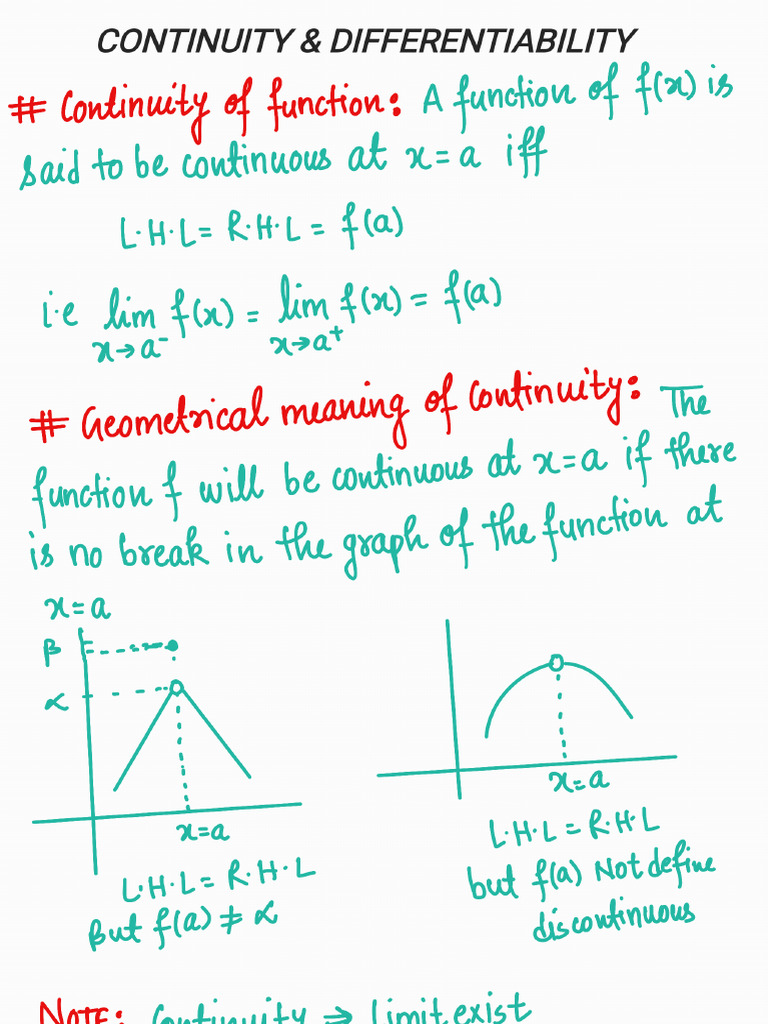 CONTINUITY & DIFFERENTIABILITY
# Continuity of function: A function of f(x) is
said to be continuous at x=a iff
L.H.L = R.H.L = f(a)
i.e lim f(x) = lim f(x) = f(a)
x→a⁻ x→a⁺
# Geometrical meaning of Continuity: The
function f will be continuous at x=a if there
is no break in the graph of the function at
x=a
β
α
x=a
L.H.L = R.H.L
But f(a) ≠ α
x=a
L.H.L = R.H.L
but f(a) Not define
discontinuous
NOTE: Continuity ⇒ Limit exist